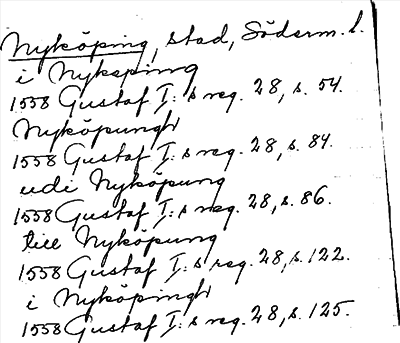 Nyköping, stad, Söderm. l.
i Nykøping
1558 Gustaf I:s reg. 28, s. 54.
Nyköpungh
1558 Gustaf I:s reg. 28, s. 84.
udi Nyköpung
1558 Gustaf I:s reg. 28, s. 86.
till Nyköpung
1558 Gustaf I:s reg. 28, s. 122.
i Nyköpingh
1558 Gustaf I:s reg. 28, s. 125.